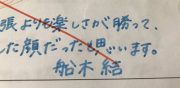 張よりも楽しさが勝って、
した顔だったと思います。
船木 結